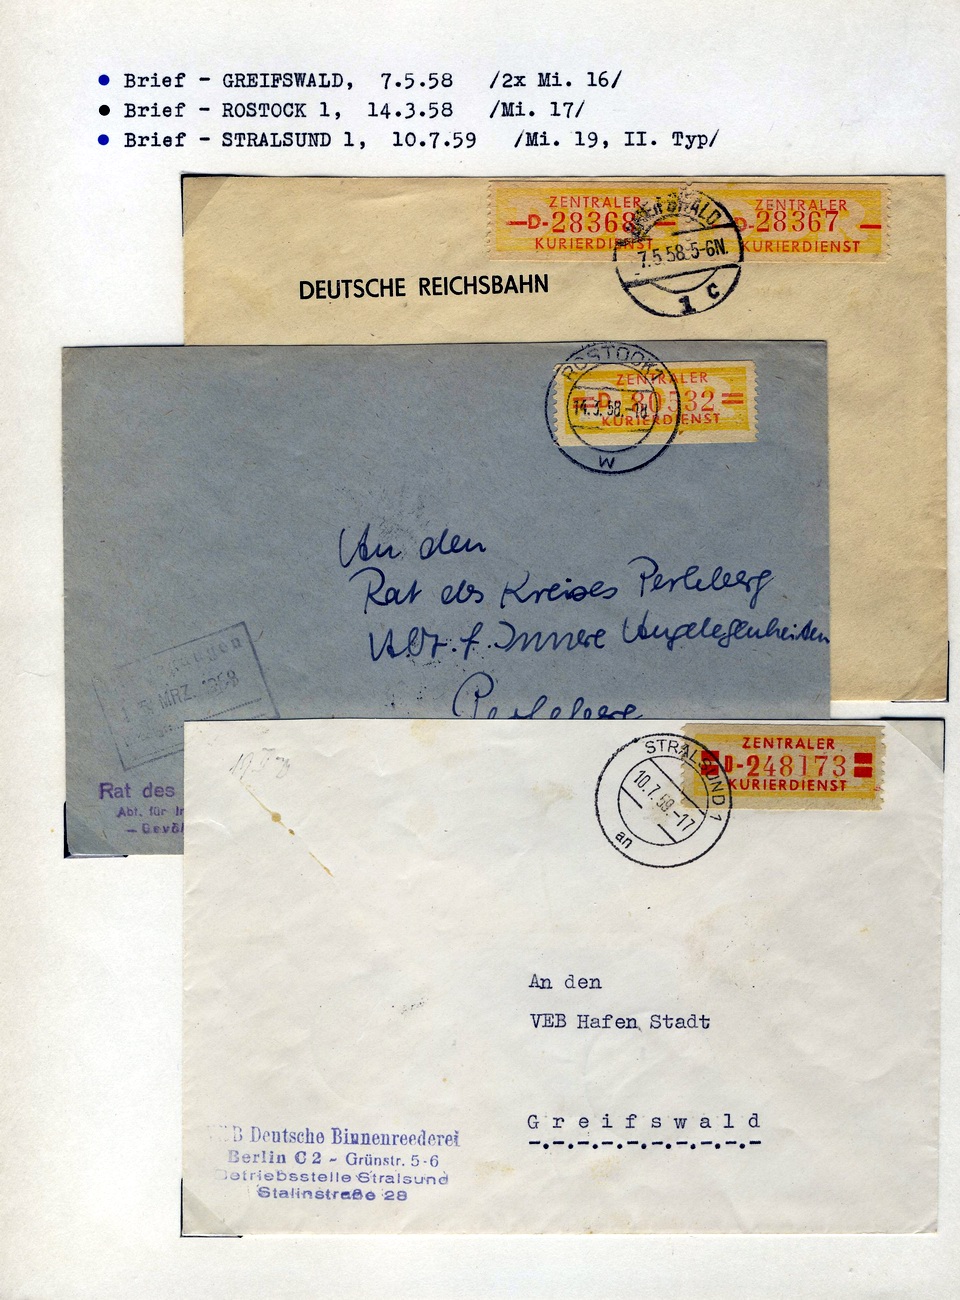 Brief - GREIFSWALD, 7.5.58 /2x Mi. 16/
Brief - ROSTOCK 1, 14.3.58 /Mi. 17/
Brief - STRALSUND 1, 10.7.59 /Mi. 19, II. Typ/
ZENTRALER
D-28368
KURIERDIENST
ZENTRALER
D-28367
KURIERDIENST
7.5.58.5-6N.
1 c
DEUTSCHE REICHSBAHN
ROSTOCK 1
14.3.58.-18
W
ZENTRALER
D-80532
KURIERDIENST
An den
Rat des Kreises Perleberg
Abt. f. Innere Angelegenheiten
Perleberg
MRZ. 1958
Rat des
Abt. für In
STRALSUND 1
10.7.59.-17
an
ZENTRALER
D-248173
KURIERDIENST
An den
VEB Hafen Stadt
Greifswald
B Deutsche Binnenreederei
Berlin C 2 - Grünstr. 5-6
Betriebsstelle Stralsund
Stalinstraße 28